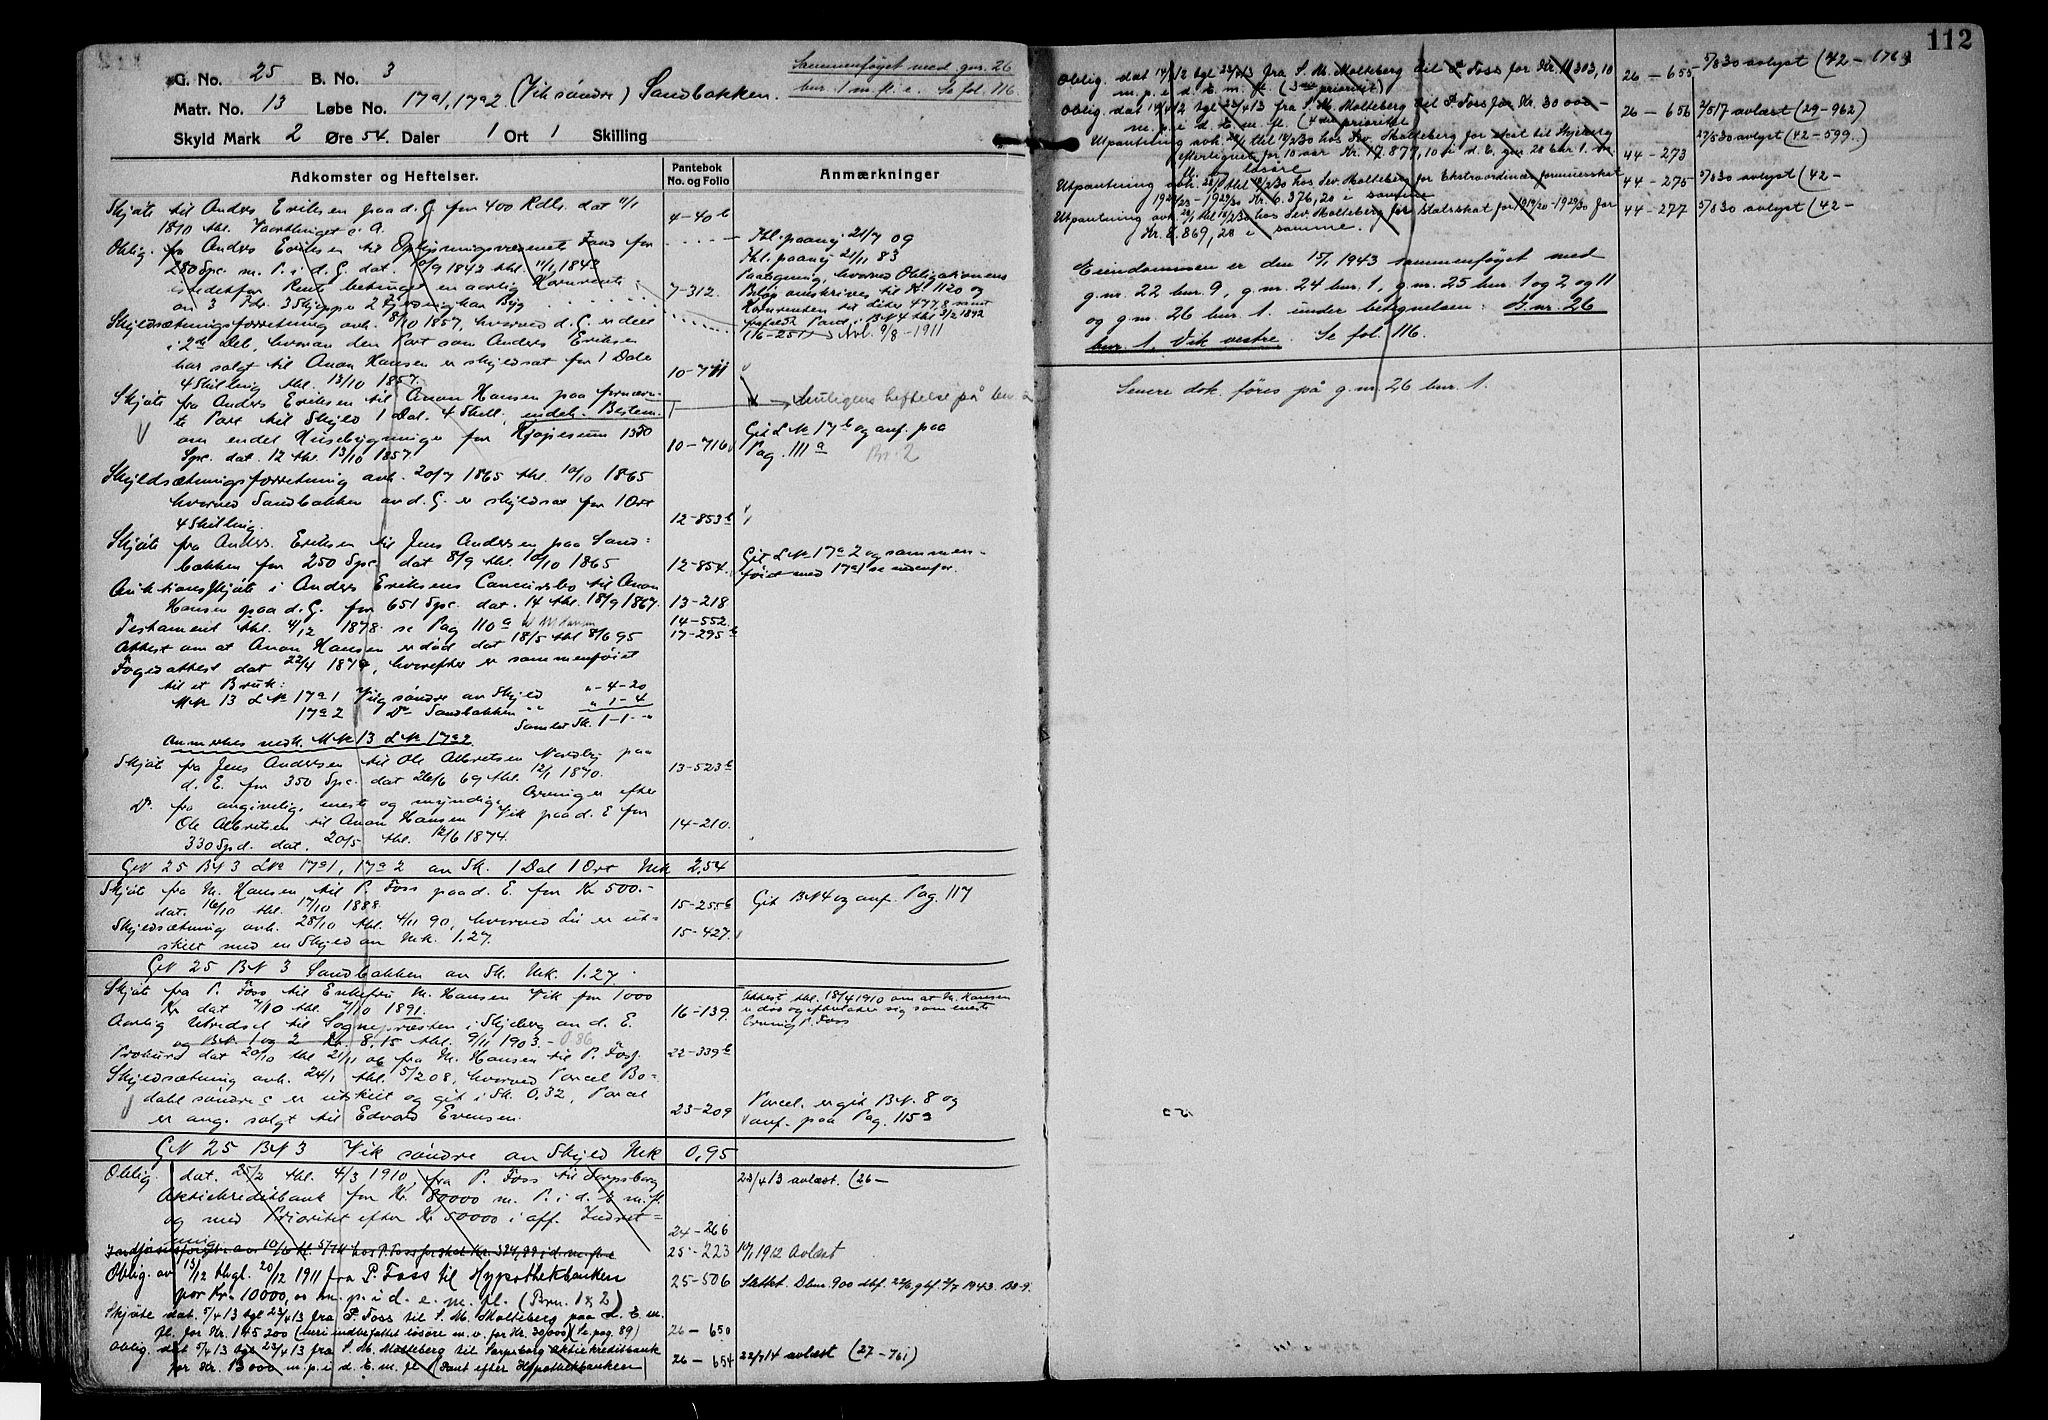 G. No. 25 B. No. 3
Sammenføyet med gnr. 26
bnr. 1 m. fl. e. Se fol. 116
Matr. No. 13 Løbe No. 17a1, 17a2 (Vik søndre) Sandbakken.
Skyld Mark 2 Øre 54. Daler 1 Ort 1 Skilling
Adkomster og Heftelser.
Pantebok No. og Folio
Anmærkninger
Skjøte til Anders Eriksen paa d. G. for 400 Rdlr. dat 11/1
1810 thlinget s. a.
4-40b
Oblig. fra Anders Eriksen til Oplysningsvæsenet Fond for
280 Spc. m. P. i d. G. dat. 10/9 1842 thl. 11/1 1843
istedetfor Rente betinger en aarlig Kornrente
av 3 Tdr. 3 Skjeppe 2 Fjerdingkar Byg
7-312.
Thl. paany 21/7 09
Thl. paany 21/11 83
Paategning, hvorved Obligationens
Beløp omskrives til Kr. 1120 og
Kornrenten til liter 477,8 samt
Pant i BN 4 thl 3/2 1892
(16-251) Avl. 9/8-1911
Skyldsætningsforretning avh. 8/10 1857, hvorved d. G. er delt
i 2de Del, hvorav den Part som Anders Eriksen
har solgt til Anon Hansen er skyldsat for 1 Dale
4 Skilling thl. 13/10 1857.
10-711
Skjøte fra Anders Eriksen til Anon Hansen paa fornævn-
te Part til Skyld 1 Dal. 4 Skill. endel. Bestem.
om endel Husebygninger for Kjøpesum 1350
Spc. dat. 12 thl. 13/10 1857.
10-716
Muligens heftelse på bnr 2
Git L No 17b og anf. paa
Pag. 111a Bn. 2
Skyldsætningsforretning avh. 20/7 1865 thl. 10/10 1865
hvorved Sandbakken av d. G. er skyldsat for 1 Ort
4 Skilling.
12-853b
Skjøte fra Anders Eriksen til Jens Andersen paa Sand-
bakken for 250 Spc. dat 8/9 thl. 10/10 1865
12-854.
Git L No 17a2 og sammen-
føiet med 17a1 se nedenfor.
Auktionsskjøte i Anders Eriksens Concursbo til Anon
Hansen paa d. G. for 651 Spc. dat. 14 thl. 18/9 1867.
13-218
Testament thl. 4/12 1878. se Pag 110a
14-552.
Attest om at Anon Hansen er død dat 18/5 thl 8/6 95
17-295b
Fogedattest dat 22/4 1879, hvorefter er sammenføiet
til et Bruk:
MNo 13 LNo 17a1 Vig søndre av Skyld " - 4-20
17a2 Do Sandbakken " " " 1-4
Samlet Sk. 1-1-"
Anmerkes nedk. MNo 13 LNo 17a2.
Skjøte fra Jens Andersen til Ole Albretsen Nordby paa
d. E. for 350 Spc. dat 26/6 69 thl. 12/1 1870.
13-523b
Do. fra angivelig eneste og myndige Arvinger efter
Ole Albretsen til Anon Hansen Vik paa d. E for
330 Spd. dat. 20/5 thl. 12/6 1874.
14-210.
GN 25 BN 3 LNo 17a1, 17a2 av Sk. 1 Dal 1 Ort Mk 2,54
Skjøte fra M. Hansen til P. Foss paa d. E. for Kr 500.-
dat. 16/10 thl. 17/10 1888.
15-255b
Git BN 4 og anf. Pag. 117
Skyldsætning avh. 28/10 thl. 4/11 90, hvorved Lii er ut-
skilt med en Skyld av Mk. 1.27.
15-427.
GN 25 BN 3 Sandbakken av Sk. Mk. 1.27.
Skjøte fra P. Foss til Enkefru M. Hansen Vik for 1000
Kr dat 7/10 thl. 7/10 1891.
16-139.
Attest thl. 18/4 1910 om at M. Hansen
er død og efterlater sig som eneste
Arving P. Foss
Aarlig Utredsel til Sognepresten i Skjeberg av d. E.
og BN 1 og 2 Kr. 8,15 thl. 9/11 1903. - 0.86
Prokura dat 20/10 thl 21/11 06 fra M. Hansen til P. Foss.
22-339b
Skyldsætning avh. 24/1 thl. 5/2 08, hvorved Parcel Bo-
dahl søndre c er utskilt og git i Sk. 0,32, Parcel
er ang. solgt til Edvard Evensen.
23-209
Parcel. er git BN. 8 og
anf. paa Pag. 115a
GN 25 BN 3 Vik søndre av Skyld Mk 0,95
Oblig. dat. 25/2 thl. 4/3 1910, fra P. Foss til Sarpsborg
Aktiekreditbank for Kr. 80000 m. P. i d. E m. fl.
og med Prioritet efter Kr 50000 i off. Indret-
ning
24-266
23/4 13 avlæst. (26-
25-223 19/1 1912 Avlæst
Oblig. av 15/12 thgl. 20/12 1911 fra P. Foss til Hypothekbanken
for Kr. 10000, m. p. i d. e. m. fl. (Bru. 1 & 2)
25-506
Slettet. Dbnr. 900 dtf. 22/6 gbf. 2/7 1943.
Skjøte dat. 5/4 13 tgl 23/4 13 fra P. Foss til S. M. Molteberg paa d. E. m.
fl. for Kr. 145 200 (heri indbefattet løsøre m. v. for Kr. 30 000) (Se pag. 89)
26-650
Oblig. dat 5/4 13 tgl 23/4 13 fra S. M. Molteberg til Sarpsborg Aktiekreditbank
for Kr. 13 000 m. p. i d. E. m. fl. (Pant efter Hypothekbanken)
26-654
22/7 14 avlæst (27-761)
112
Oblig. dat 14/4 12 tgl 23/4 13 fra S. M. Molteberg til P. Foss for Kr. 11 303,10
m. p. i d. E. m. fl. (3die prioritet)
26-655
5/8 30 avlyst (42-176)
Oblig dat 14/4 12 tgl 23/4 13 fra S. M. Molteberg til P. Foss for Kr. 30 000-
m. p. i d. E. m. fl. (4de prioritet
26-656
2/5 17 avlæst (29-962)
Utpantning avh. 28/1 thl 14/2 30 hos Sev. Molteberg for skat til Skjeberg
efterlignet for 10 aar Kr. 17.877,10 i d. E. gnr 26 bnr 1. m.
fl. og løsøre
44-273
27/5 30 avlyst (42-599.)
Utpantning avh. 28/1 thl 14/2 30 hos Sev. Molteberg for Ekstraordinær formuesskat
1922/23-1929/30 Kr. 6.376,20 i samme
44-275
5/8 30 avlyst (42-
Utpantning avh. 28/1 thl 14/2 30 hos Sev. Molteberg for Statsskat for 1919/20-1929/30 for
Kr. 8.869,20 i samme.
44-277
5/8 30 avlyst (42-
Eiendommen er den 15/1 1943 sammenføyet med
g.nr. 22 bnr. 9, g.nr. 24 bnr. 1, g.nr. 25 bnr. 1 og 2 og 11
og g.nr. 26 bnr. 1. under betegnelsen: G.nr. 26
bnr. 1. Vik vestre. Se fol. 116.
Senere dok. føres på g.nr. 26 bnr. 1.